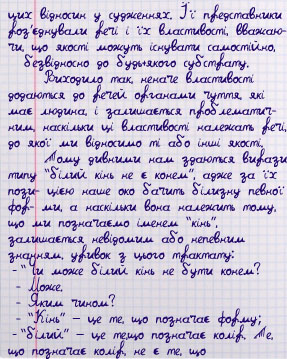 цих відносин у судженнях. Її представники
роз'єднували речі і їх властивості, вважаю-
чи, що якості можуть існувати самостійно,
безвідносно до будь-якого субстрату.
Виходило так, неначе властивості
додаються до речей органами чуття, які
має людина, і залишається проблематич-
ним, наскільки ці властивості належать речі,
до якої ми відносимо ті або інші якості.
Тому дивними нам здаються вирази
типу "білий кінь не є конем", адже за їх
пози- цією наше око бачить білизну певної
фор- ми, а наскільки вона належить тому,
що ми позначаємо іменем "кінь",
залишається невідомим або непевним
знанням, уривок з цього трактату:
- "Чи може білий кінь не бути конем?
- Може.
- Яким чином?
- "Кінь" – це те, що позначає форму;
- "білий" – це тещо позначає колір. Те,
що позначає колір, не є те, що